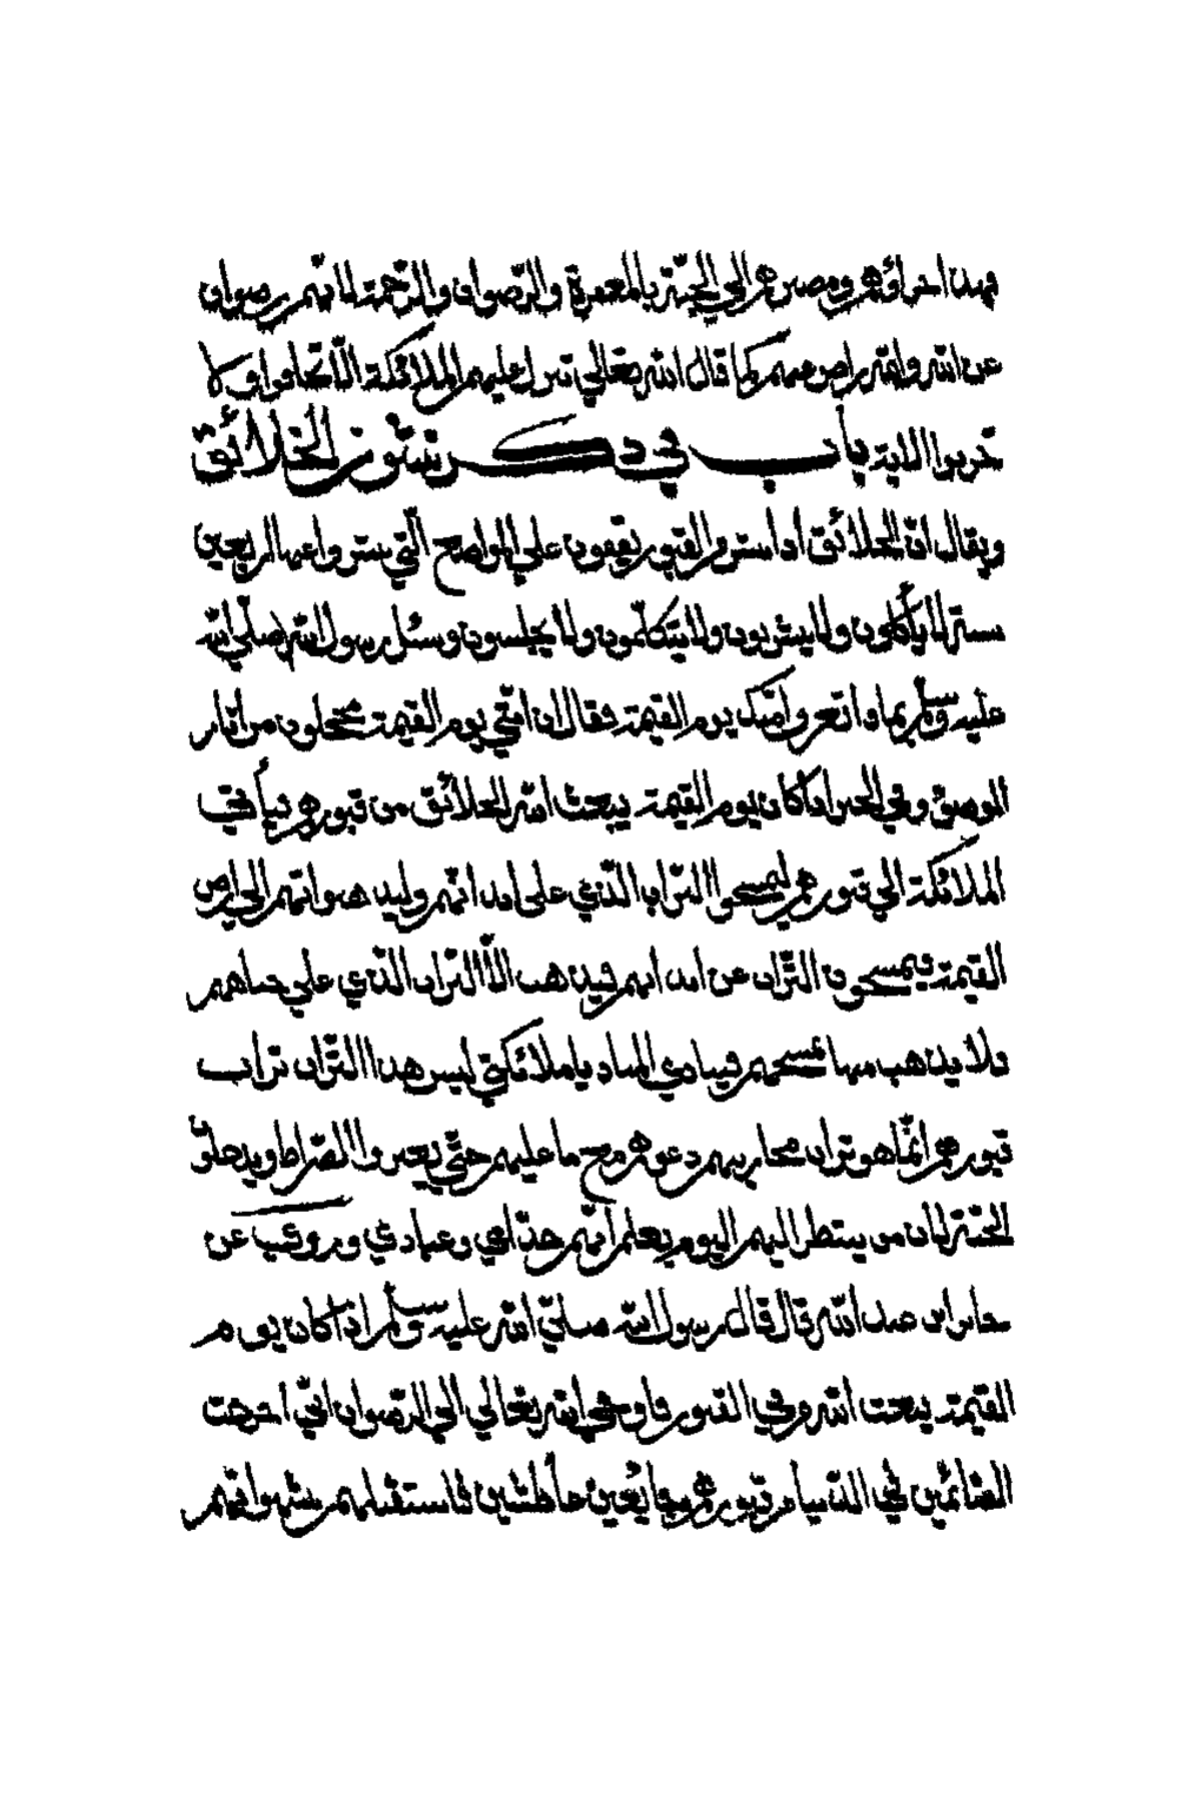 فهذا جزاؤهم ومصيرهم الى الجنة بالمغفرة والرضوان والرحمة لانهم يرضوان
عن الله والله راض عنهم كما قال الله تعالي تتنزل عليهم الملائكة الا تخافوا ولا
تحزنوا الاية باب في ذكر نشور الخلائق
ويقال ان الخلائق اذا نشروا من القبور يقفون علي المواضع التي نشروا عنها اربعين
سنة لا يأكلون ولا يشربون ولا يتكلمون ولا يجلسون وسئل رسول الله صلي الله
عليه وسلم بماذا تعرف امتك يوم القيمة فقال ان امتي يوم القيمة محجلون من اثار
الوضوء وفي الخبر اذا كان يوم القيمة يبعث الله الخلائق من قبورهم فيأتي
الملائكة الي قبورهم ليمسحوا التراب الذي على ابدانهم وليذهبوا بهم الي ارض
القيمة فيمسحون التراب عن ابدانهم فيذهب الا التراب الذي علي جباههم
فلا يذهب منها بمسحهم فينادي المناد ياملائكتي ليس هذا التراب تراب
قبورهم انما هو تراب محاريبهم دعوهم مع ما عليهم حتي يعبروا الصراط ويدخلوا
الجنة لان من ينظر اليهم اليوم يعلم انهم خدامي وعبادي وروي عن
جابر ابن عبد الله قال قال رسول الله صلي الله عليه وسلم اذا كان يوم
القيمة يبعث الله من في القبور فاوحي الله تعالي الي الرضوان اني اخرجت
الصائمين في الدنيا من قبورهم جايعين عاطشين فاستقبلهم بشهواتهم